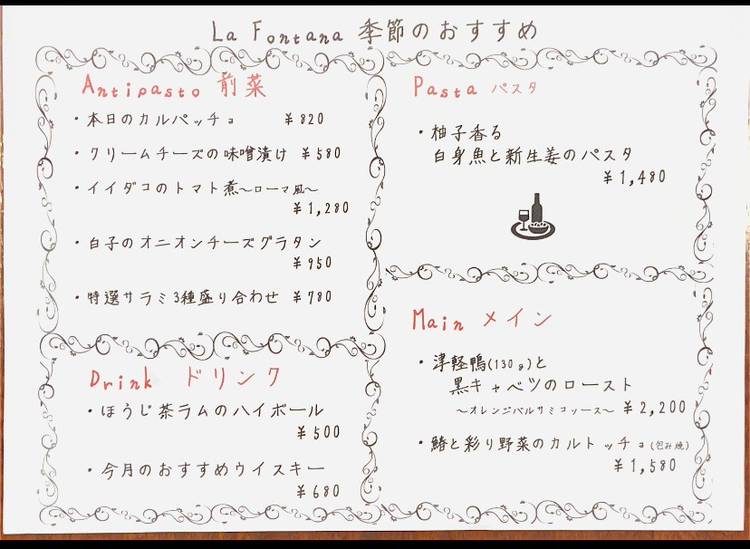 La Fontana 季節のおすすめ
Antipasto 前菜
・本日のカルパッチョ ¥820
・クリームチーズの味噌漬け ¥580
・イイダコのトマト煮~ローマ風~
¥1,280
・白子のオニオンチーズグラタン
¥950
・特選サラミ3種盛り合わせ ¥780
Drink ドリンク
・ほうじ茶ラムのハイボール
¥500
・今月のおすすめウイスキー
¥680
Pasta パスタ
・柚子香る
白身魚と新生姜のパスタ
¥1,480
Main メイン
・津軽鴨(130g)と
黒キャベツのロースト
~オレンジバルサミコソース~ ¥2,200
・鰆と彩り野菜のカルトッチョ(包み焼)
¥1,580